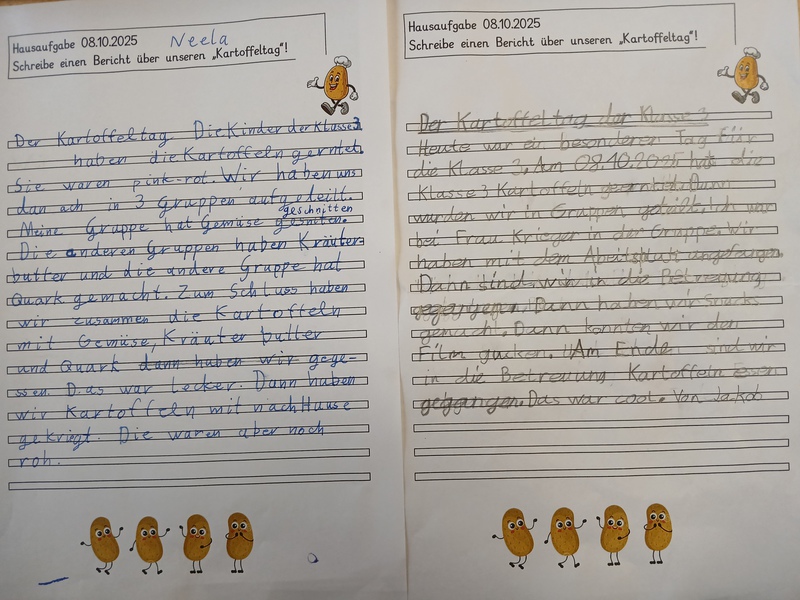 Hausaufgabe 08.10.2025 Neela
Schreibe einen Bericht über unseren „Kartoffeltag“!
Der Kartoffeltag Die Kinder der Klasse 3
haben die Kartoffeln gerntet.
Sie waren pink-rot. Wir haben uns
dan ach in 3 Gruppen aufgeteilt.
geschnitten
Meine Gruppe hat Gemüse
Die anderen Gruppen haben Kräuter-
butter und die andere Gruppe hat
Quark gemacht. Zum Schluss haben
wir zusammen die Kartoffeln
mit Gemüse, Kräuter butter
und Quark dann haben wir gege-
ssen. Das war lecker. Dann haben
wir Kartoffeln mit nach Hause
gekriegt. Die waren aber noch
roh.
Hausaufgabe 08.10.2025
Schreibe einen Bericht über unseren „Kartoffeltag“!
Der Kartoffeltag der Klasse 3
Heute war ein besonderer Tag Für
die Klasse 3. Am 08.10.2025 hat die
Klasse 3 Kartoffeln geerntet. Dann
wurden wir in Gruppen geteilt. Ich war
bei Frau Krieger in der Gruppe. Wir
haben mit dem Abeitsblatt angefangen.
Dann sind wir in die Betreuung
gegangen. Dann haben wir Snacks
gemacht. Dann konnten wir den
Film gucken. Am Ende sind wir
in die Betreuung Kartoffeln essen
gegangen. Das war cool. Von Jakob